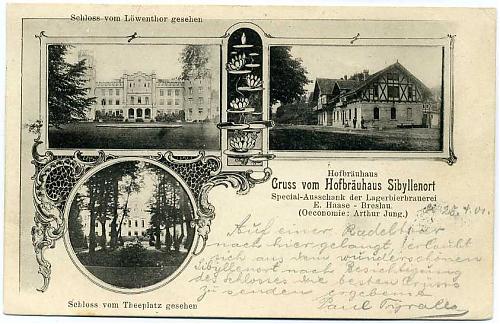 Schloss vom Löwenthor gesehen
Hofbräuhaus
Gruss vom Hofbräuhaus Sibyllenort
Special-Ausschank der Lagerbierbrauerei
E. Haase - Breslau.
(Oeconomie: Arthur Jung.)
Auf einer Radeltour
nach hier gelangt, erlaubt
sich aus dem wunderschönen
Sibyllenort nach Besichtigung
des Schlosses die besten Grüsse
zu senden ergebenst
Paul
Schloss vom Theeplatz gesehen